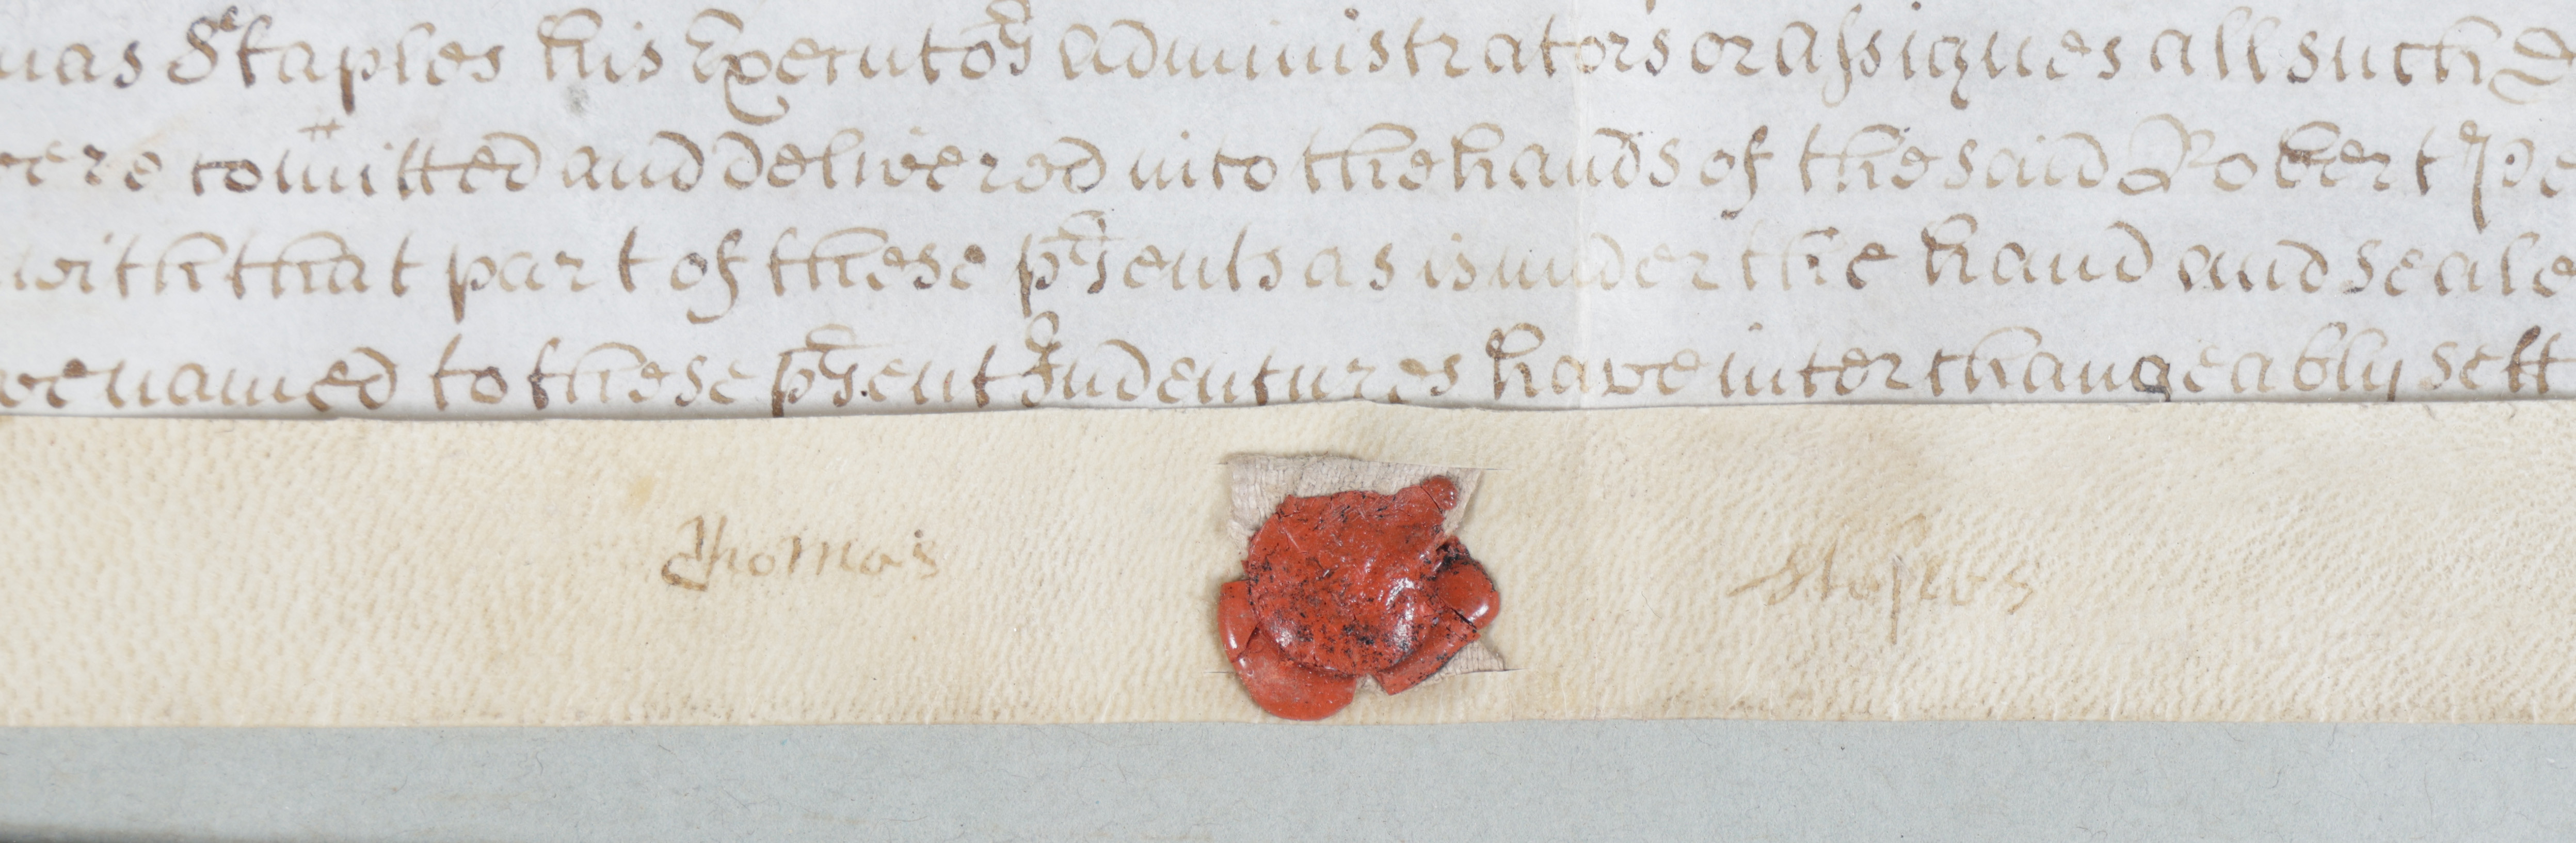 mas Staples his Executors administrators or assignes all such
were comitted and delivered into the hands of the said Robert Pe
with that part of these prsents as is under the hand and seale
venamed to these prsent Indentures have interchangeably sett
Thomas Staples